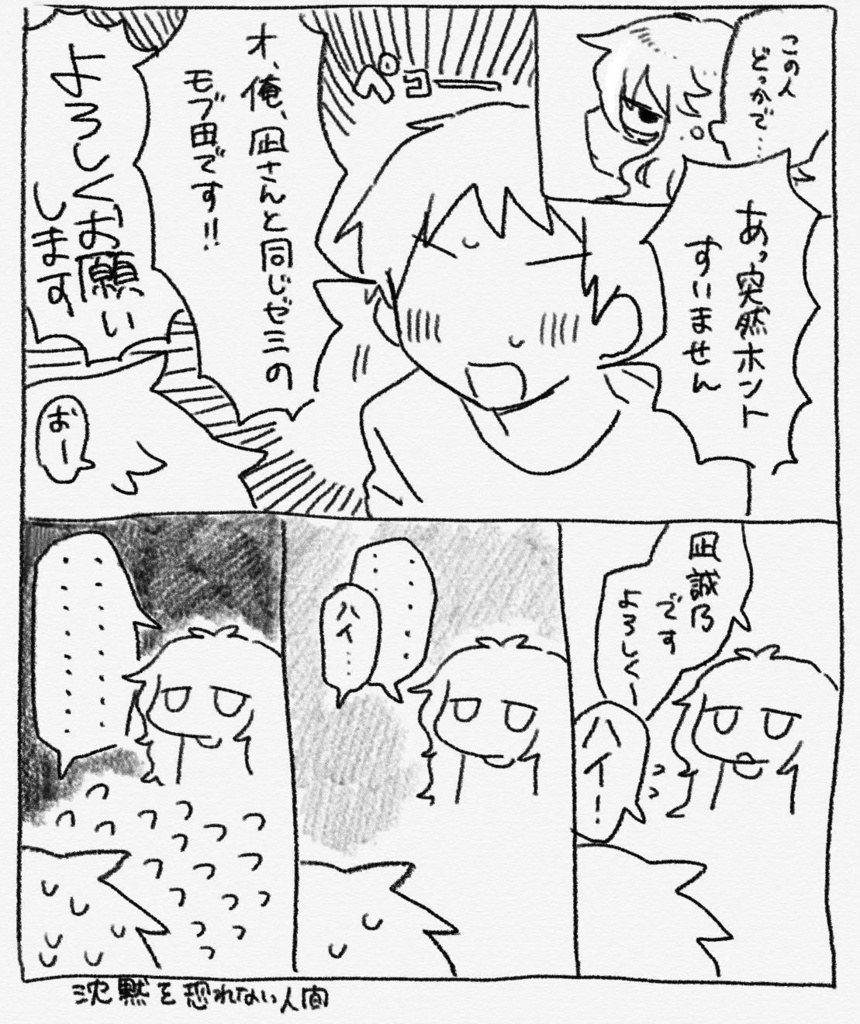 この人
どっかで…
あっ突然ホント
すいません
ペコー
オ、俺、凪さんと同じゼミの
モブ田です!!
よろしくお願い
します
おー
凪誠乃
です
よろしくー
ハイ!
‥‥‥‥
ハイ…
‥‥‥‥‥‥
沈黙を恐れない人間